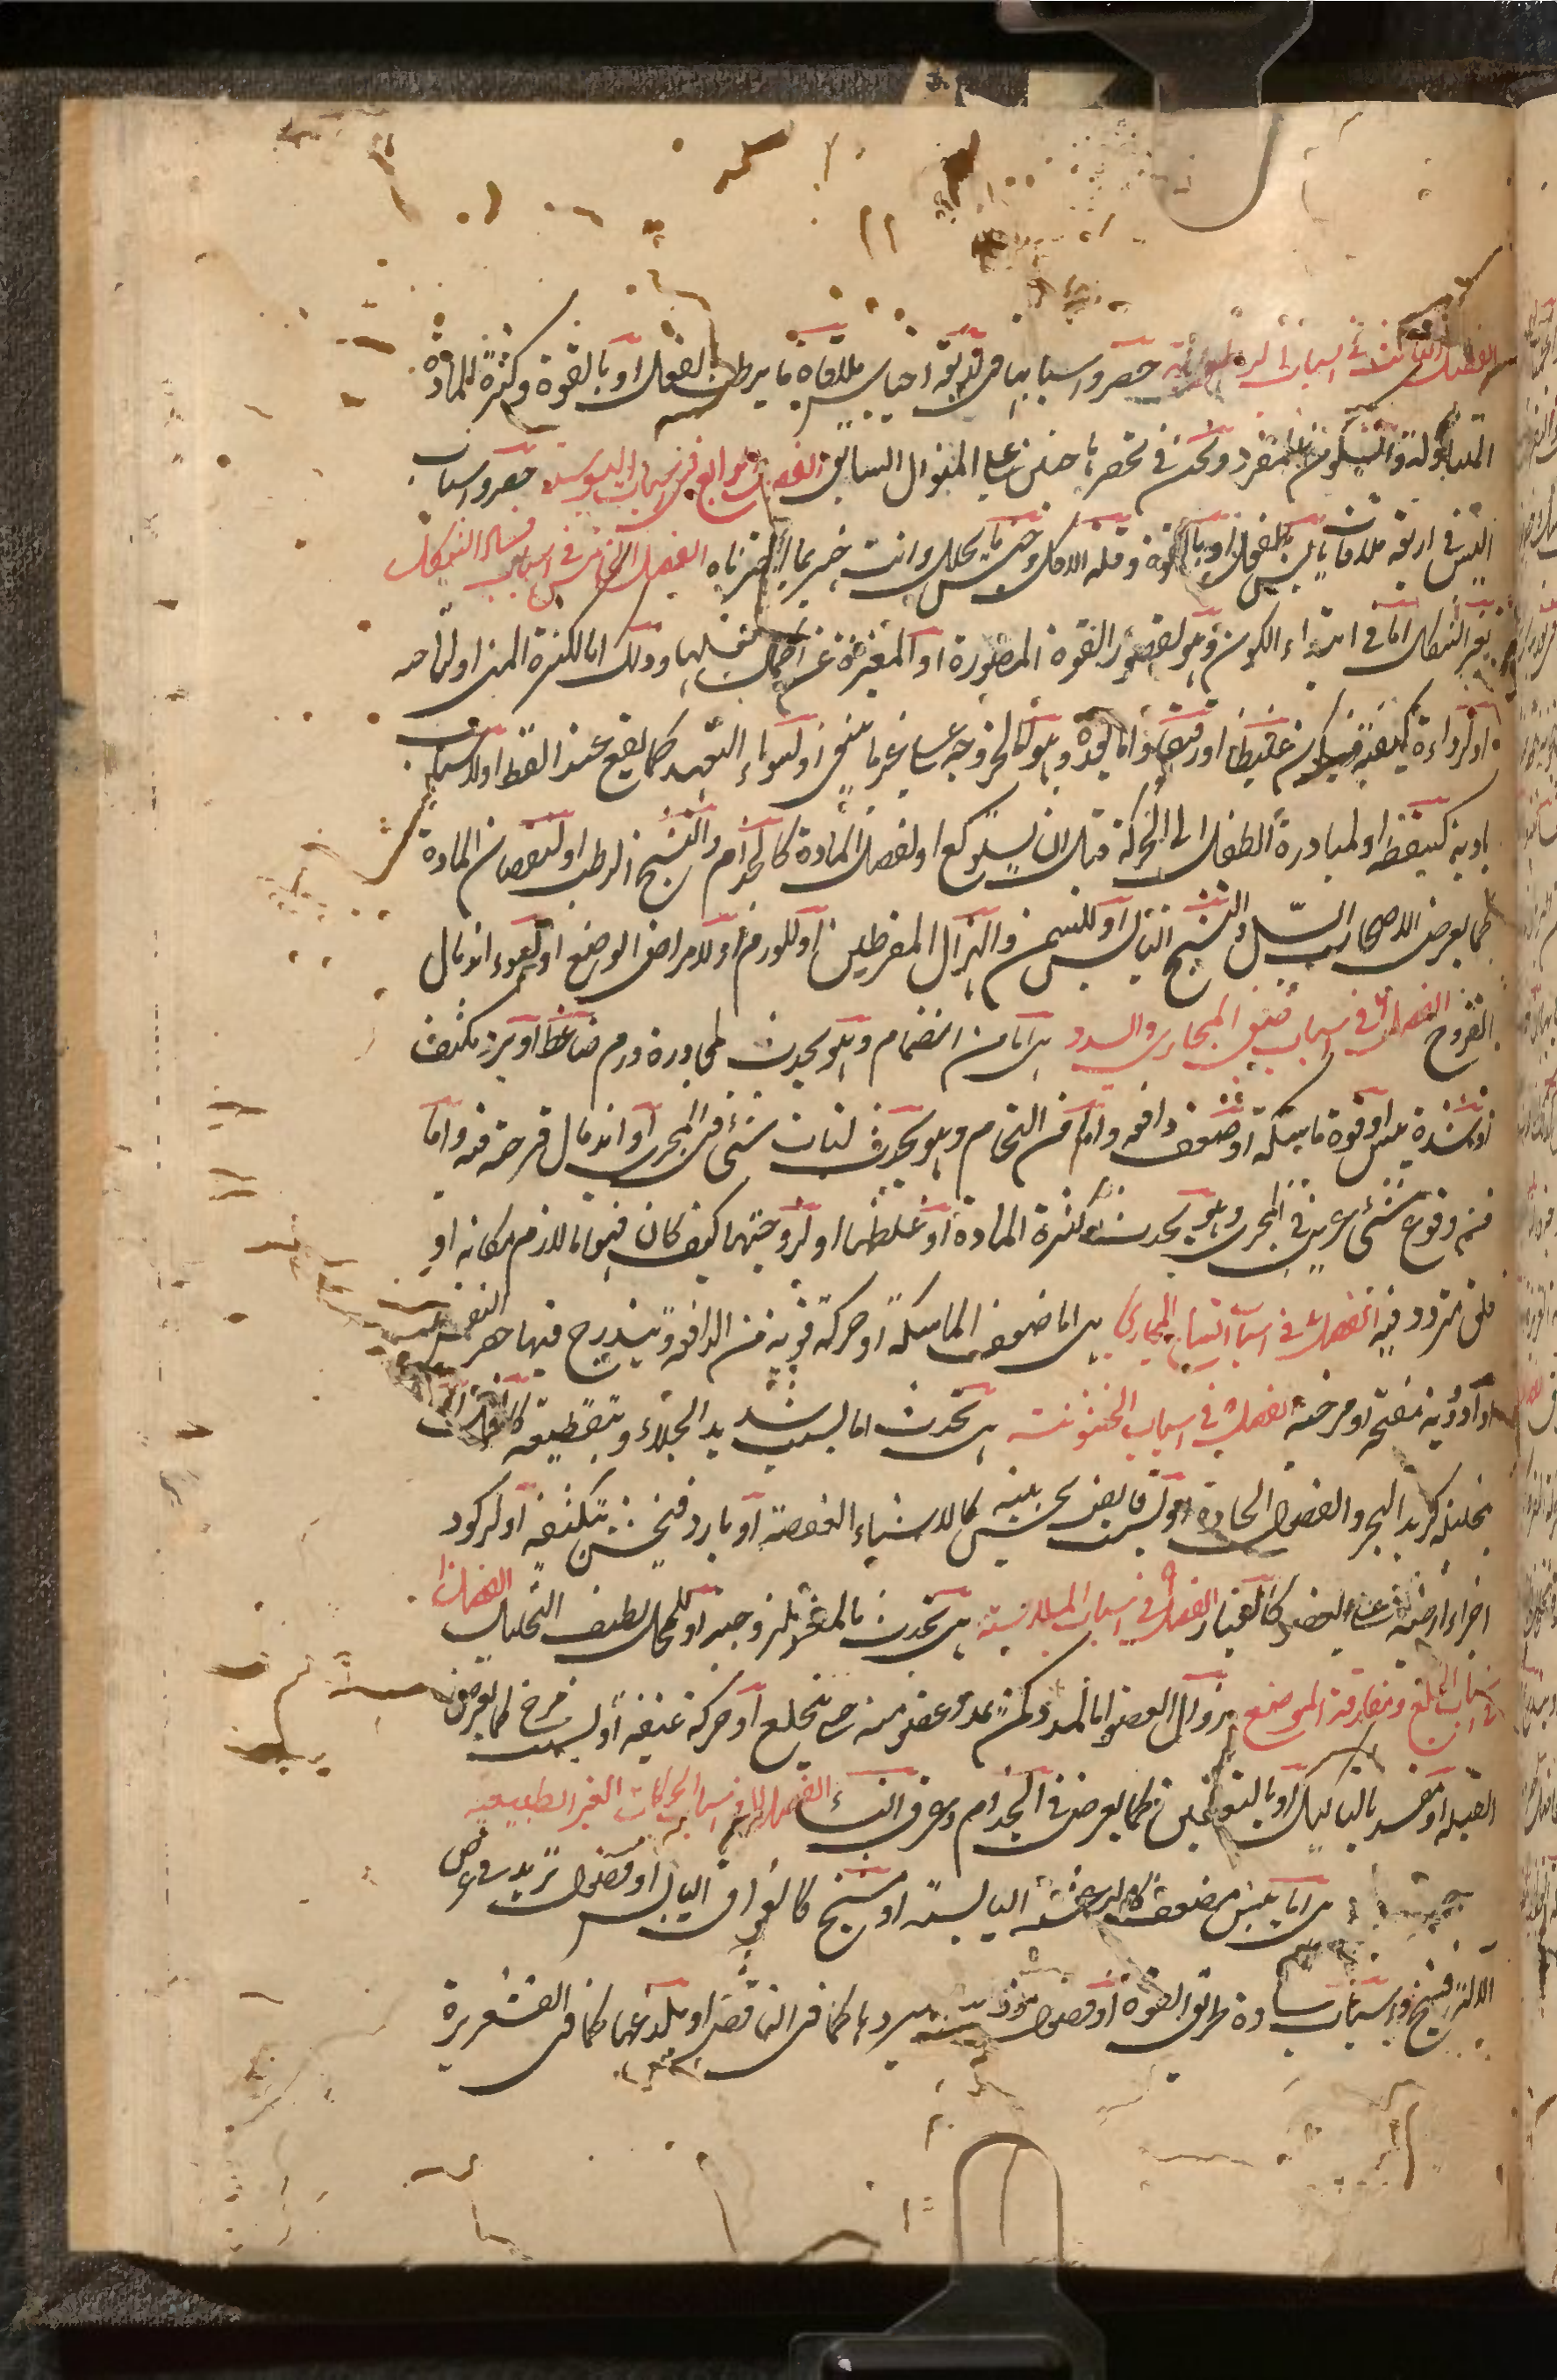 الفصل الثالث في اسباب الرطوبة حصروا سبابها في اربعة احتباس ملاقاة ما يرطب بالفعل او بالقوة وكثرة المادة
المتناولة والسكون المفرد ونحن في تحصرها على المنوال السابق الفصل الرابع في اسباب اليبوسة حصروا سباب
اليبس في اربعة ملاقات يابس بالفعل او بالقوة وقلة الاكل وحس ما يحلل وانت خبير بما اخترناه الفصل الخامس في اسباب فساد الشكل
تغير الشكل اما في ابتداء الكون وهو لقصور القوة المصورة او المغيرة عن فعلها وذلك اما لكثرة المني او لقلته
او لرداءة كيفيته فيكون غليظا او رقيقا واما بعده وهو كالخروجه على غير ما ينبغي او لسوء التمهيد كما يقع عند القط او لاسباب
بادية كسقطة او لمبادرة الطفل الى الحركة قبل ان يستوكع او لفصل المادة كالجذام والتشنج الرطب او لنقصان المادة
كما يعرض لاصحاب السل والتشنج اليابس او للسمن والهزال المفرطين او للورم او لامراض الوضع او لسوء اندمال
القروح الفصل ٦ في اسباب ضيق المجاري والسدد هي اما من انضمام وهو يحدث لمجاورة ورم ضاغط او برد مكثف
او شدة يبس او قوة ماسكة او ضعف دافعة واما من التحام وهو يحدث لنبات شيء في المجرى او اندمال قرحة فيه واما
فمن وقوع شيء غريب في المجرى وهو يحدث لكثرة المادة او غلظها او لزوجتها كيف كان فهو اما لازم مكانه او
قلق متردد فيه الفصل ٧ في اسباب اتساع المجاري هي اما ضعف الماسكة او حركة قوية من الدافعة ويندرج فيها حصر النفس
او ادوية مفتحة او مرخية الفصل ٨ في اسباب الخشونة هي تحدث اما لسبب شديد الجلاء وبتقطيعه كالخل او
بتحليله كزبد البحر والفضول الحادة او لسبب قابض يخشن بيبسه كالاشياء العفصة او بارد فيخشن بتكثيفه او لركود
اجزاء ارضية على العضو كالغبار الفصل ٩ في اسباب الملاسة هي تحدث بالمغري بلزوجته او للمحلل لطيف التحليل الفصل ١٠
في اسباب الخلع ومفارقة الموضع هي زوال العضو اما لتمدد كمن يمدد عضو منه حتى ينخلع او حركة عنيفة او لسبب مرخ كما يعرض في
القيلة او مفسد بالتاكيل او بالتعفين كما يعرض في الجذام وعرق النسا الفصل ١١ في اسباب الحركات الغير الطبيعية
هي اما يبس مضعف كالرعشة اليابسة او مشنج كالفواق اليابس او فضول تزيد عرض
الآلة فتشنج او اسباب سادة طرق القوة او فضول موذية ببردها كما في النافض او بلذعها كما في القشعريرة